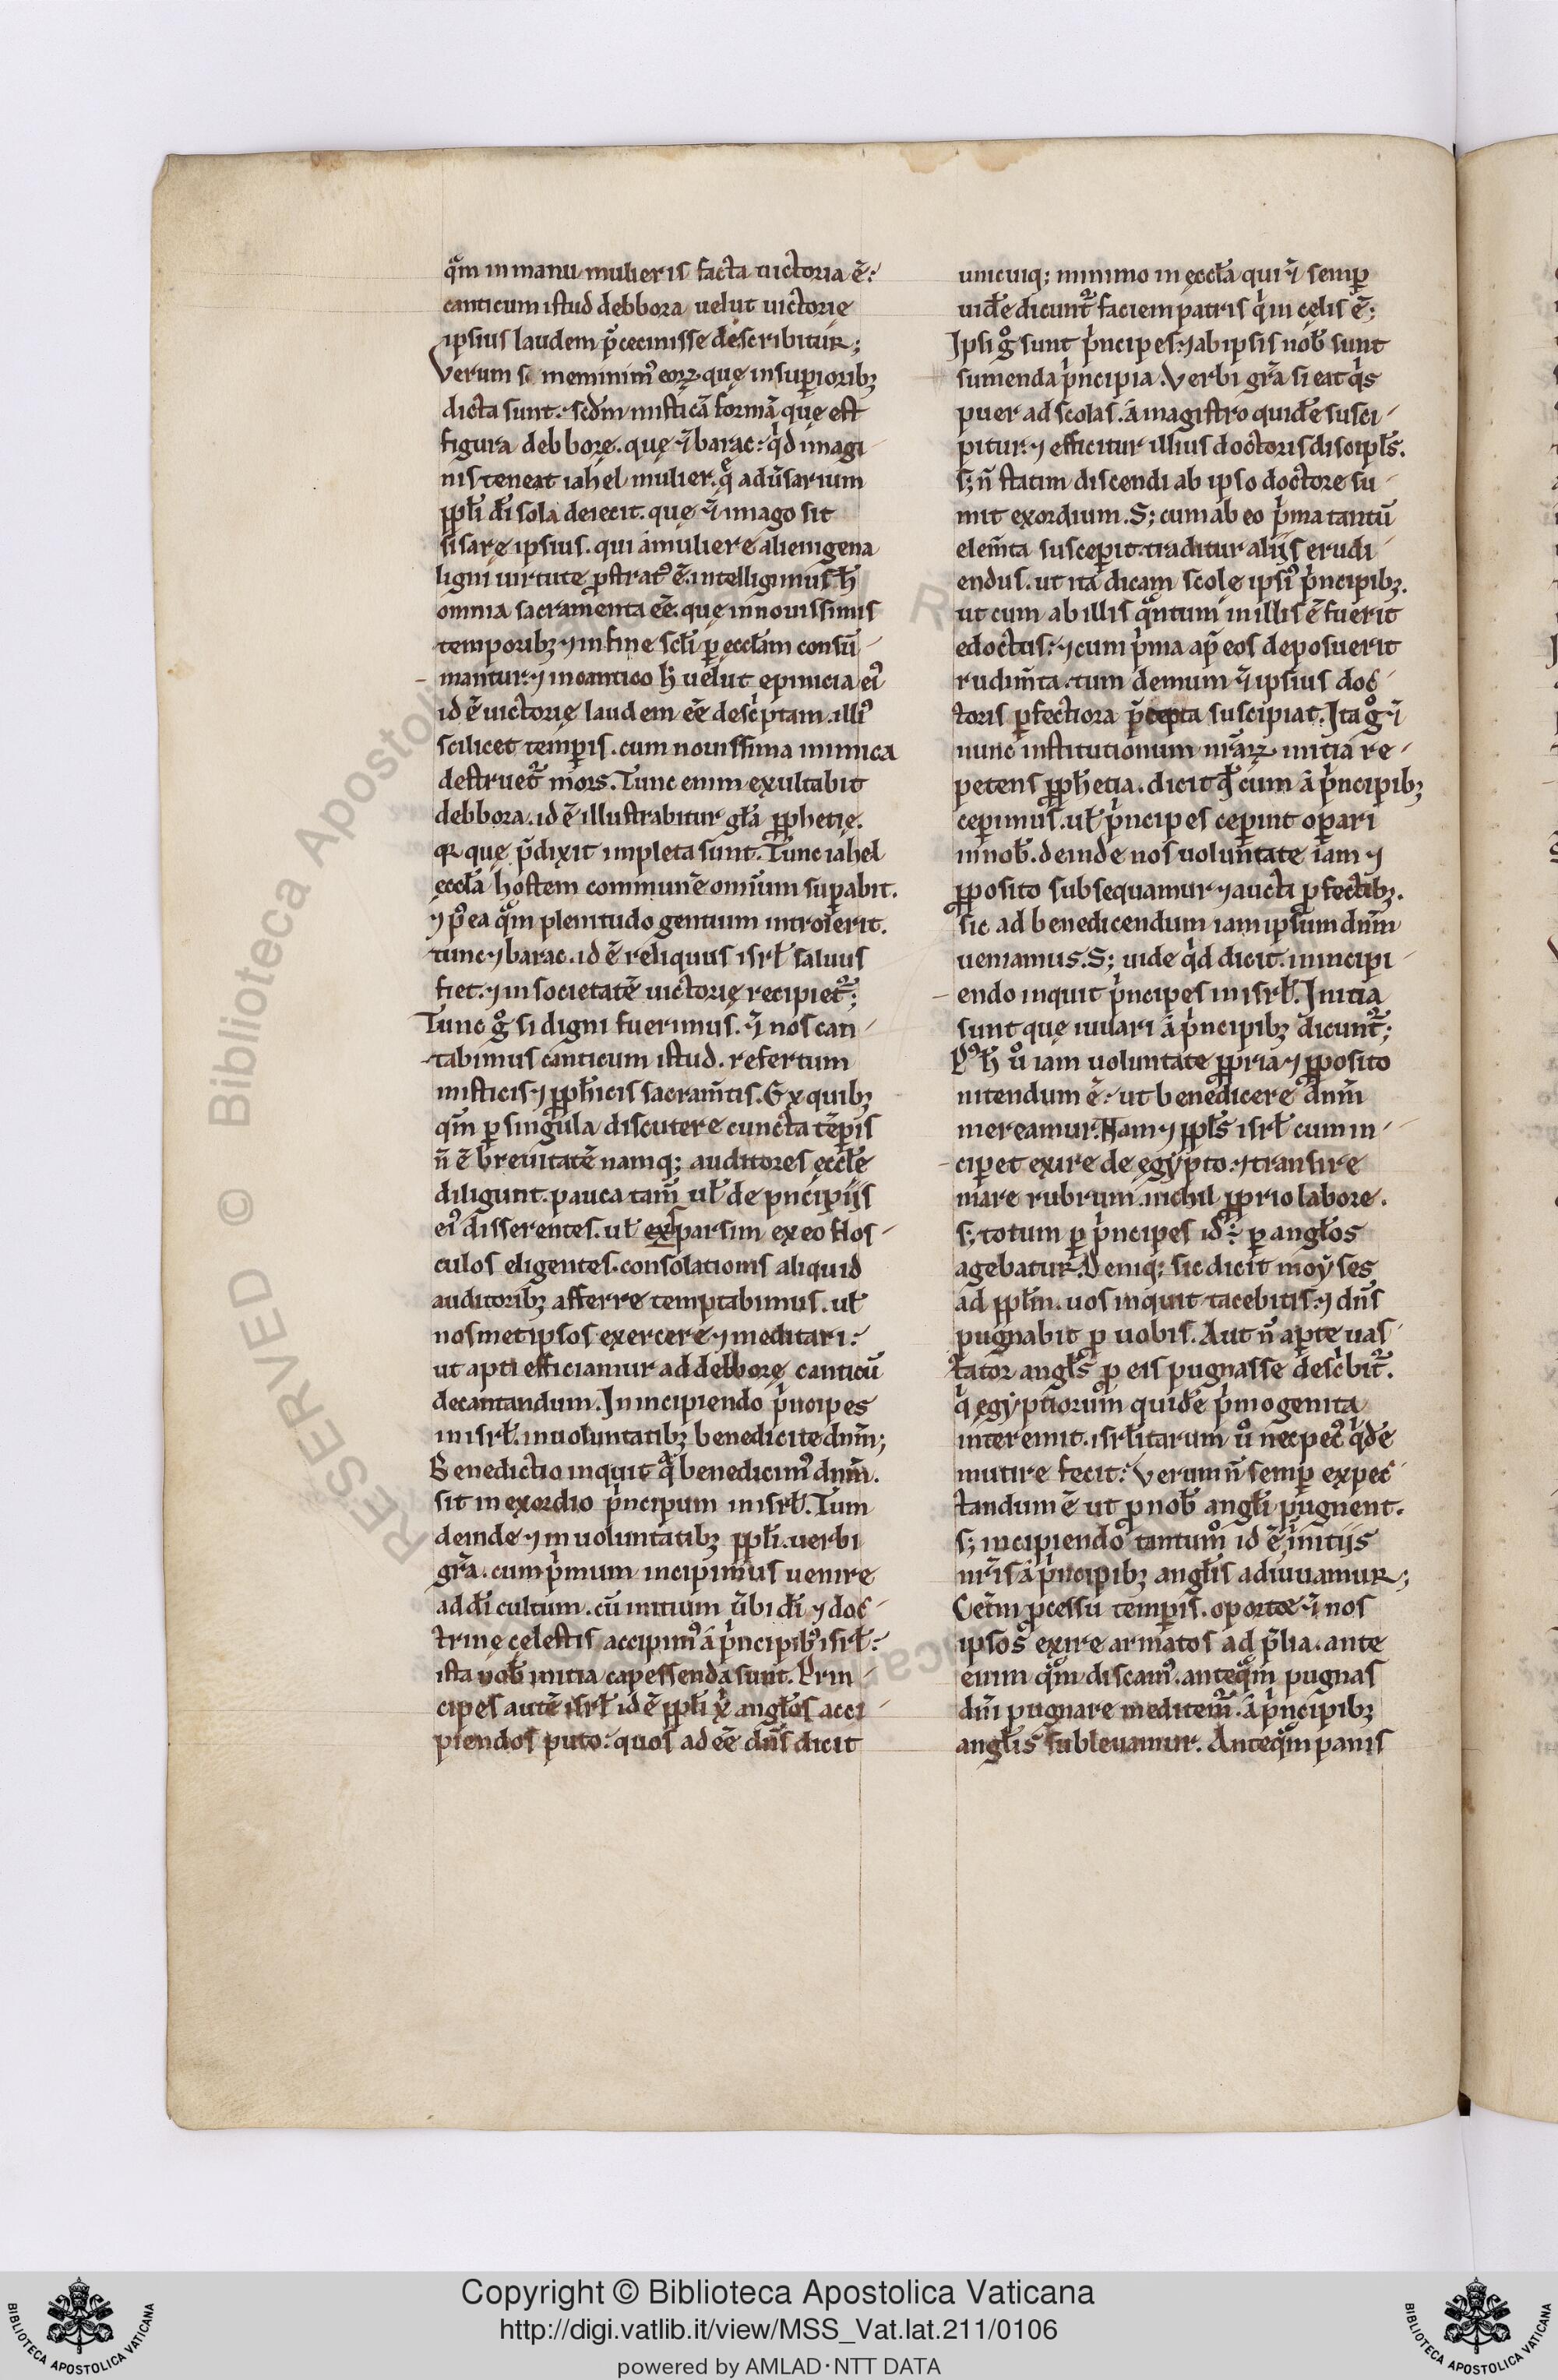 qm̄ in manu mulieris facta uictoria ē:
canticum istud debbora uelut uictorię
ipsius laudem p̄cecinisse describitur;
Verum si meminim᷒ eoꝝ quę in superiorib;
dicta sunt. scd̄m misticā formā que est
figura debborę. quę ⁊ barac: qd imagi
nis teneat iahel mulier. q̄ adu̅sarium
ppl̄i dī sola deiecit. quę ⁊ imago sit
sisarę ipsius. qui a muliere alienigena
ligni uirtute ꝓstrat᷒ ē. intelligimus h̄
omnia sacramenta eē. quę in nouissimis
temporib; ⁊ in fine scl̄i ꝑ ęccl̄am consū
mantur: ⁊ in cantico h̄ uelut epinicia ei᷒
id ē uictorię laudem eē desc̓ptam. illi᷒
scilicet temꝑis. cum nouissima inimica
destruet᷑ mors. Tunc enim exultabit
debbora. id ē illustrabitur gl̄a ꝓphetię.
qꝛ quę p̄dixit impleta sunt. Tunc iahel
ęccl̄a hostem commune̅ omīum suꝑabit.
⁊ p᷒ ea qm̄ plenitudo gentium introierit.
tunc ⁊ barac. id ē reliquus isrl̄ saluus
fiet. ⁊ in societatē uictorię recipiet᷑;
Tunc g̊ si digni fuerimus. ⁊ nos can
tabimus canticum istud. refertum
misticis ⁊ ꝓph̄icis sacram̄tis. Ex quib;
qm̄ ꝑ singula discutere cuncta tēꝑis
n̄ ē breuitatē namq; auditores ęccl̄e
diligunt. pauca tam̄ ul̄ de pncipiis
ei᷒ disserentes. ul̄ exsparsim ex eo flos
culos eligentes. consolationis aliquid
auditorib; afferre temptabimus. ul̄
nosmetipsos exercere ⁊ meditari:
ut apti efficiamur ad debborę canticū
decantandum. In incipiendo p̓ncipes
in isrl̄. in uoluntatib; benedicite dnm̄;
Benedictio inquit qͣ benedicim᷒ dnm̄.
sit in exordio p̓ncipum in isrl̄. Tum
deinde ⁊ in uoluntatib; ppl̄i. uerbi
gr̄a. cum p̓mum incipimus uenire
ad dī cultum. cū initium u̅bi dī ⁊ doc
trinę celestis accipim᷒ a p̓ncipib; isrl̄:
ista nob̄ initia capessenda sunt. Prin
cipes autē isrl̄ id ē ppl̄i xp̄i angl̄os acci
piendos puto: quos ad eē dn̄s dicit
unicuiq; minimo in ęccl̄a qui ⁊ semꝑ
uide̅ dicunt᷑ faciem patris q̓ in cęlis ē;
Ipsi g̊ sunt p̓ncipes: ⁊ ab ipsis nob̄ sunt
sumenda p̓ncipia. Verbi gr̄a si eat q̓s
puer ad scolas. a magistro quidē susci
pitur: ⁊ efficitur illius doctoris discipl̄s.
s; n̄ statim discendi ab ipso doctore su
mit exordium. S; cum ab eo p̓ma tantū
elem̄ta susceꝑit. traditur aliis erudi
endus. ut ita dicam scolę ipsi᷒ p̓ncipib;.
ut cum ab illis qͣntum in illis ē fuerit
edoctus: ⁊ cum p̓ma ap̄ eos deposuerit
rudim̄ta. tum demum ⁊ ipsius doc
toris ꝑfectiora p̄cepta suscipiat. Ita g̊ ⁊
nunc institutionum nr̄aꝝ initia re
petens ꝓph̄etia. dicit qd̄ cum a p̓ncipib;
ceꝑimus. ul̄ p̓ncipes ceꝑint oꝑari
in nob̄. deinde nos uolun̄tate iam ⁊
ꝓposito subsequamur ⁊ aucti ꝓfectib;.
sic ad benedicendum iam ipsum dnm̄
ueniamus. S; uide qd̓ dicit. in incipi
endo inquit p̓ncipes in isrl̄. Initia
sunt quę iuuari a p̓ncipib; dicunt᷑;
P᷒ h̄ ů iam uoluntate ꝓpria ⁊ ꝓposito
nitendum ē: ut benedicere dnm̄
mereamur. Nam ⁊ ppl̄s isrl̄ cum in
ciꝑet exire de egypto: ⁊ transire
mare rubrum. nichil ꝓprio labore.
s; totum ꝑ p̓ncipes id ē: ꝑ angl̄os
agebatur. Deniq; sic dicit moyses
ad ppl̄m. uos inquit tacebitis: ⁊ dn̄s
pugnabit ꝓ uobis. Aut n̄ apte uas
tator angl̄s ꝓ eis pugnasse desc̓bit᷑.
q̓ egyptiorum quidē p̓mogenita
interemit. isrl̄itarum ů nec pec᷒ q̓dē
mutire fecit: Verum n̄ semꝑ expec
tandum ē ut ꝓ nob̄ angl̄i pugnent.
s; incipiendo tantum id ē initiis
nr̄is a p̓ncipib; angl̄is adiuuamur;
Cet̄m ꝓcessu temꝑis. oportet ⁊ nos
ipsos exire armatos ad p̄lia. ante
enim qͣm discam᷒. anteqͣm pugnas
dn̄i pugnare meditem᷑. a p̓ncipib;
angl̄is subleuamur. Anteqͣm panis
Copyright © Biblioteca Apostolica Vaticana
http://digi.vatlib.it/view/MSS_Vat.lat.211/0106
powered by AMLAD·NTT DATA